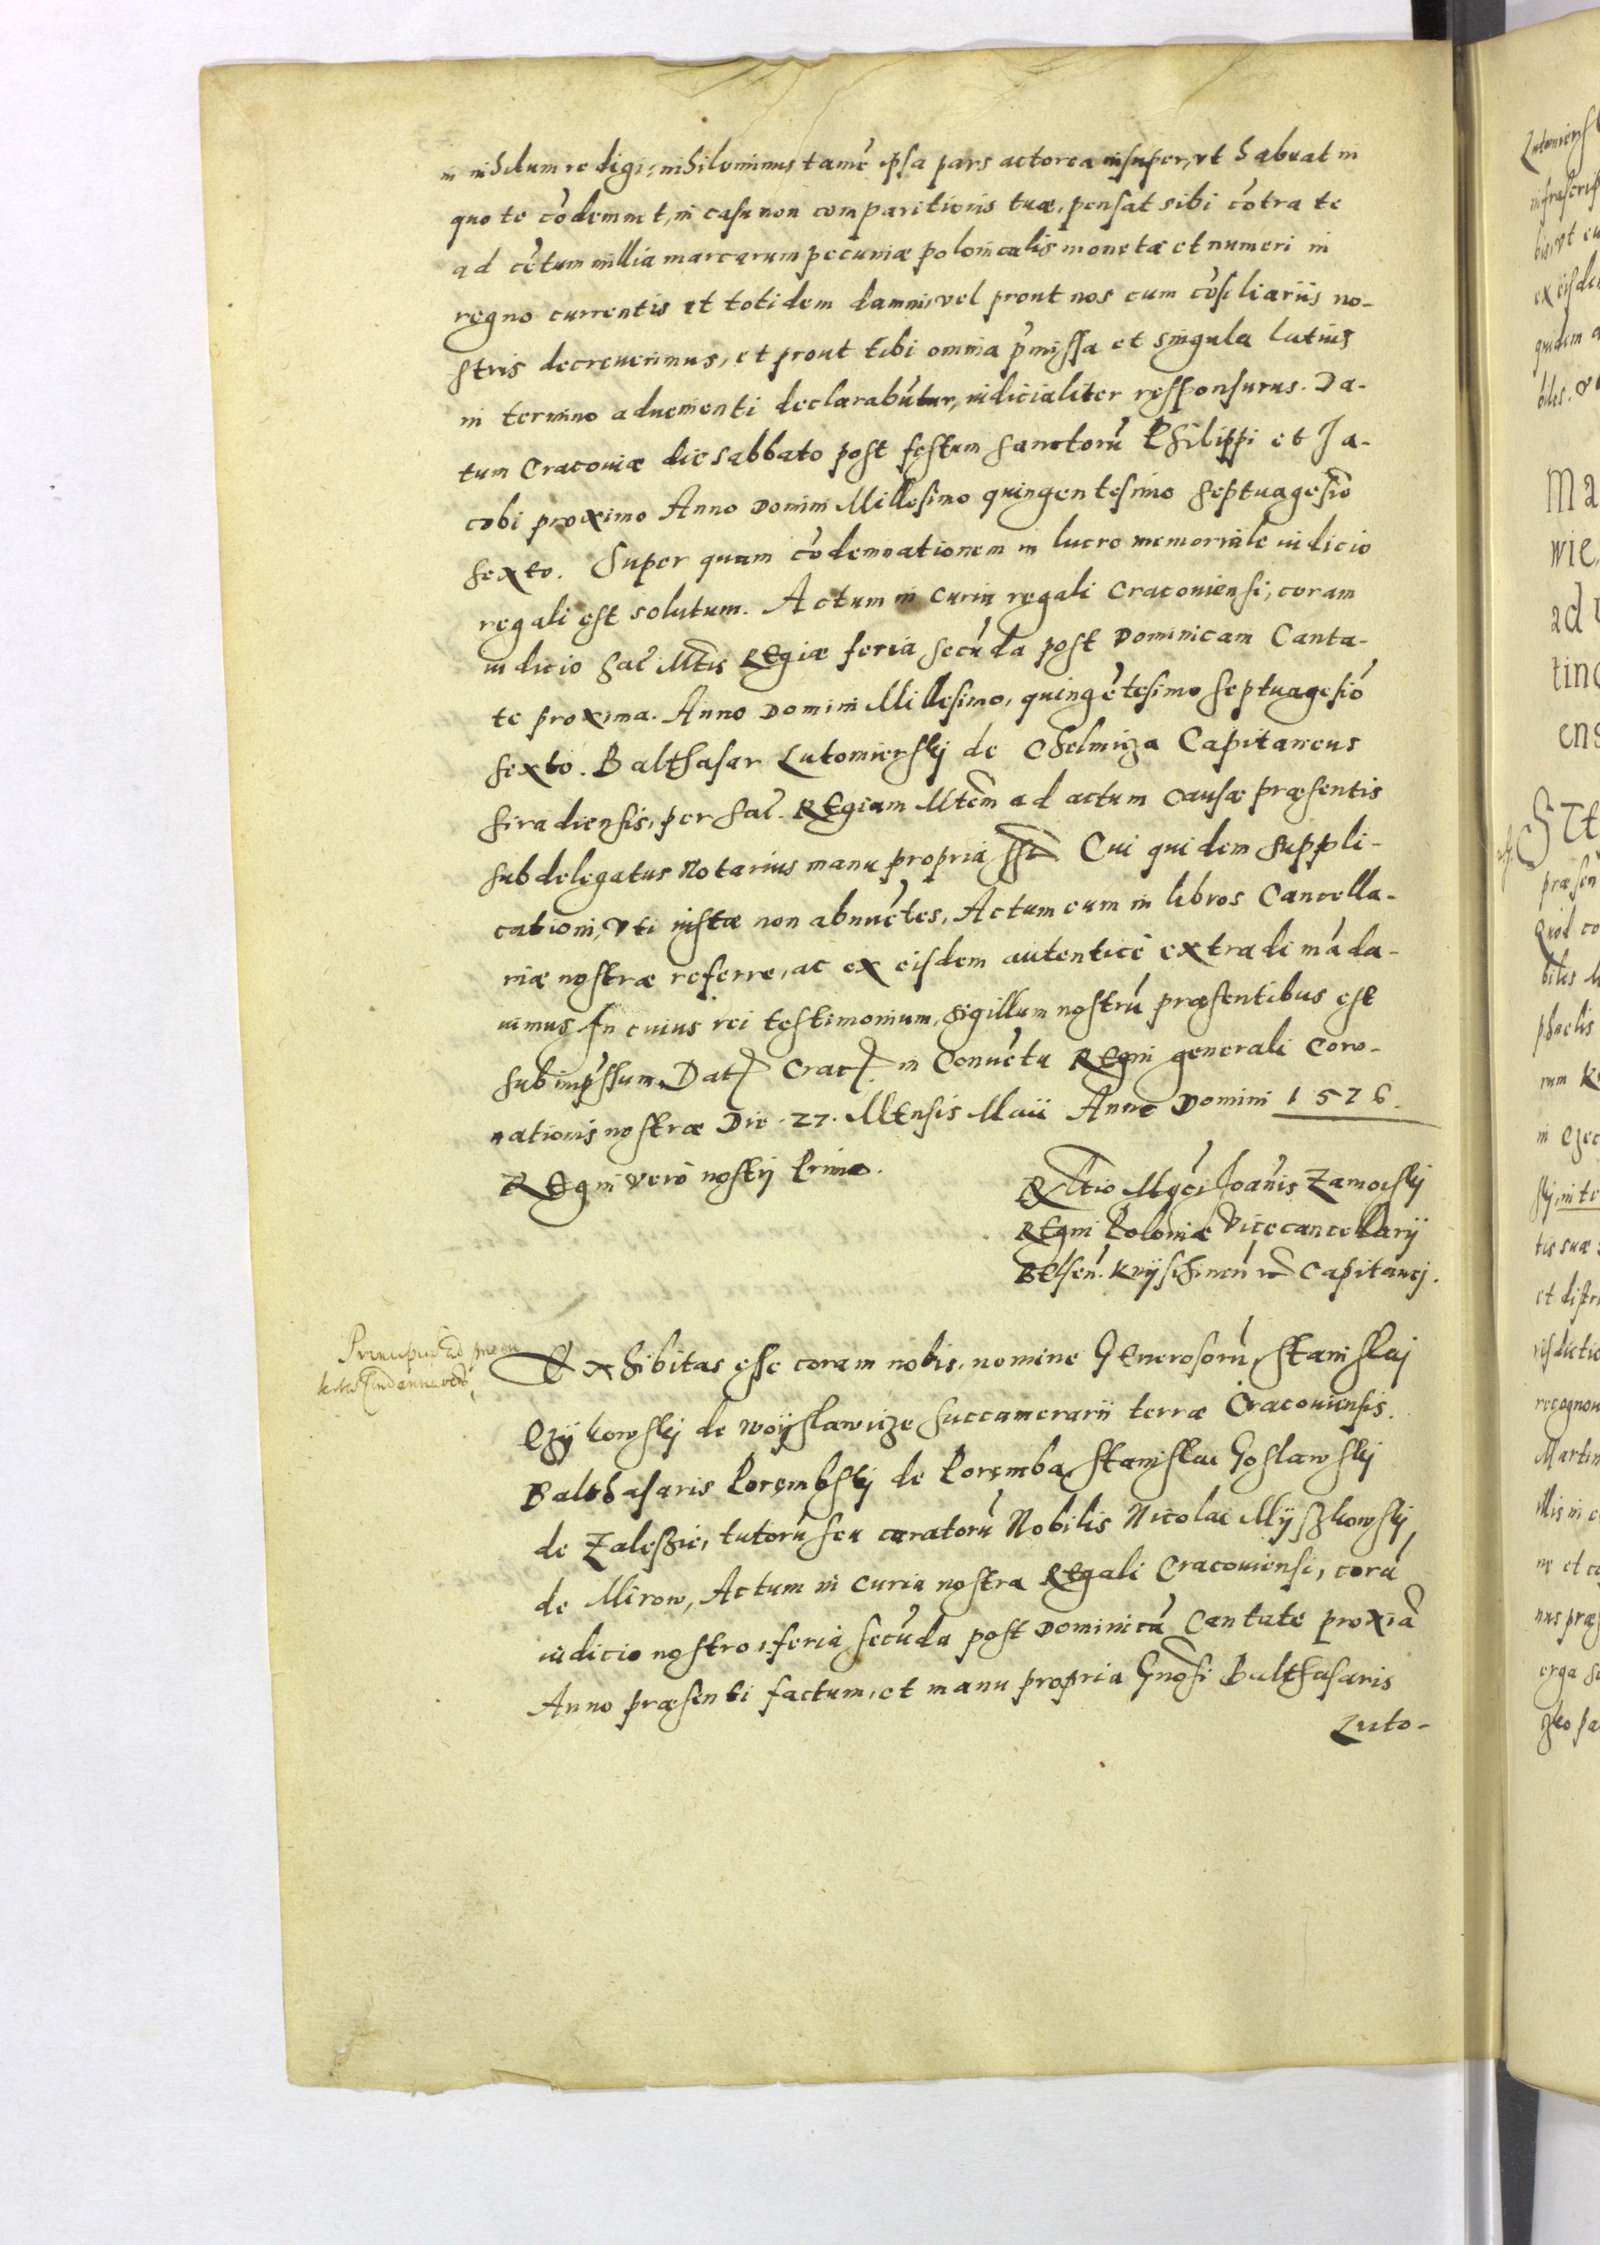 in nihilum redigi, nihilominus tamē ipsa pars actorea insuper, vt habeat in
quo te cōdemnet, in casu non comparitionis tuæ, pensat sibi cōtra te
ad cētum millia marcarum pecuniæ polonicalis monetæ et numeri in
regno currentis et totidem damni, vel prout nos cum cōsiliariis no-
stris decreuerimus, et prout tibi omnia p̄missa et singula latius
in termino aduenienti declarabūtur, iudicialiter responsurus. Da-
tum Cracouiæ die sabbato post festum sanctorū Philippi et Ja-
cobi proximo Anno Domini Millesimo quingentesimo septuagesio
sexto. Super quam cōdemnationem in lucro memoriale iudicio
regali est solutum. Actum in Curia regali Cracouiensi, coram
iudicio Sac̄ Mtis Regiæ feria secūda post Dominicam Canta-
te proxima. Anno Domini Millesimo, quingētesimo septuagesiō
sexto. Balthasar Lutomierskij de Chelmicza Capitaneus
siradiensis, per Sac̄. Regiam Mtem ad actum causæ præsentis
subdelegatus Notarius manu propria sst Cui quidem suppli-
cationi, vti iustæ non abnuētes, Actum eum in libros Cancella-
riæ nostræ referre, ac ex eisdem autenticè extradi māda-
uimus. In cuius rei testimonium, sigillum nostrū præsentibus est
subimp̄ssum. Dat Crac in Conuētu Regni generali Coro-
nationis nostræ Die .27. Mensis Maii Anno Domini 1576.
Regni verò nostrj Primo.
Rltio Mgci Joānis Zamoiskij
Regni Poloniæ Vicecancellarij
Belsen̄. Knijschinen̄ Capitanej.
Exhibitas esse coram nobis, nomine Generosorū, Stanislaj
Czijkowskij de Woijslawicze succamerarii terræ Cracouiensis.
Balthasaris Porembskij de Poremba, Stanislai Goslawskij
de Zalessie, tutorū seu curatorū Nobilis Nicolai Mijszkowskij
de Mirow, Actum in Curia nostra Regali Cracouiensi, corā
iudicio nostro, feria secūda post Dominicā Cantate proxiā
Anno præsenti factum, et manu propria Gnosi Balthasaris
Luto-